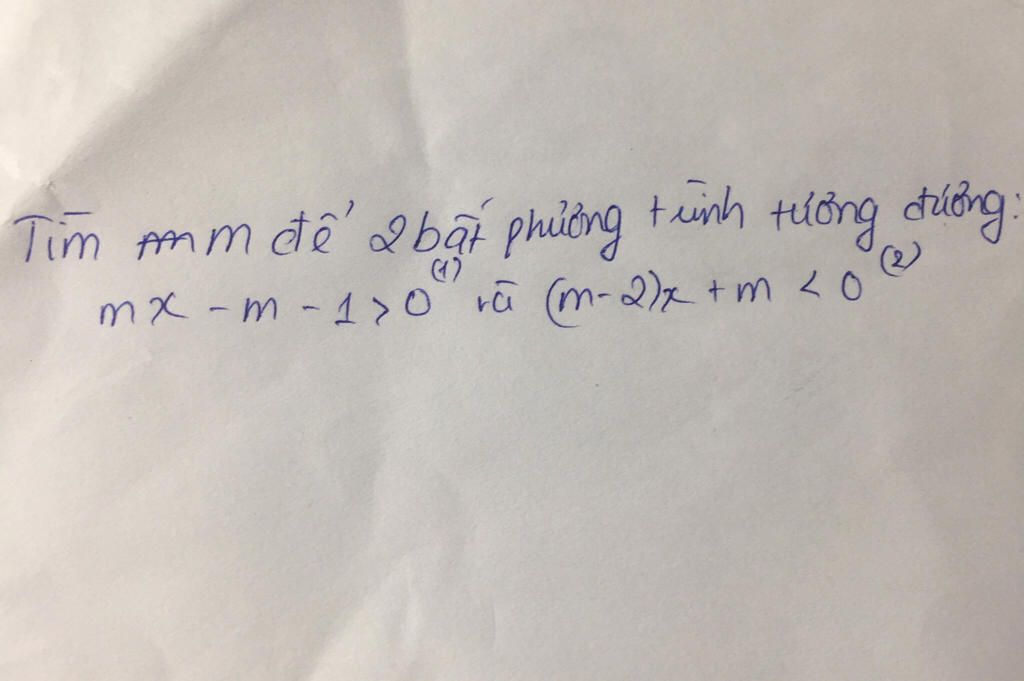 Tìm m để 2 bất phương trình tương đương:
mx - m - 1 > 0 (1) và (m-2)x + m < 0 (2)